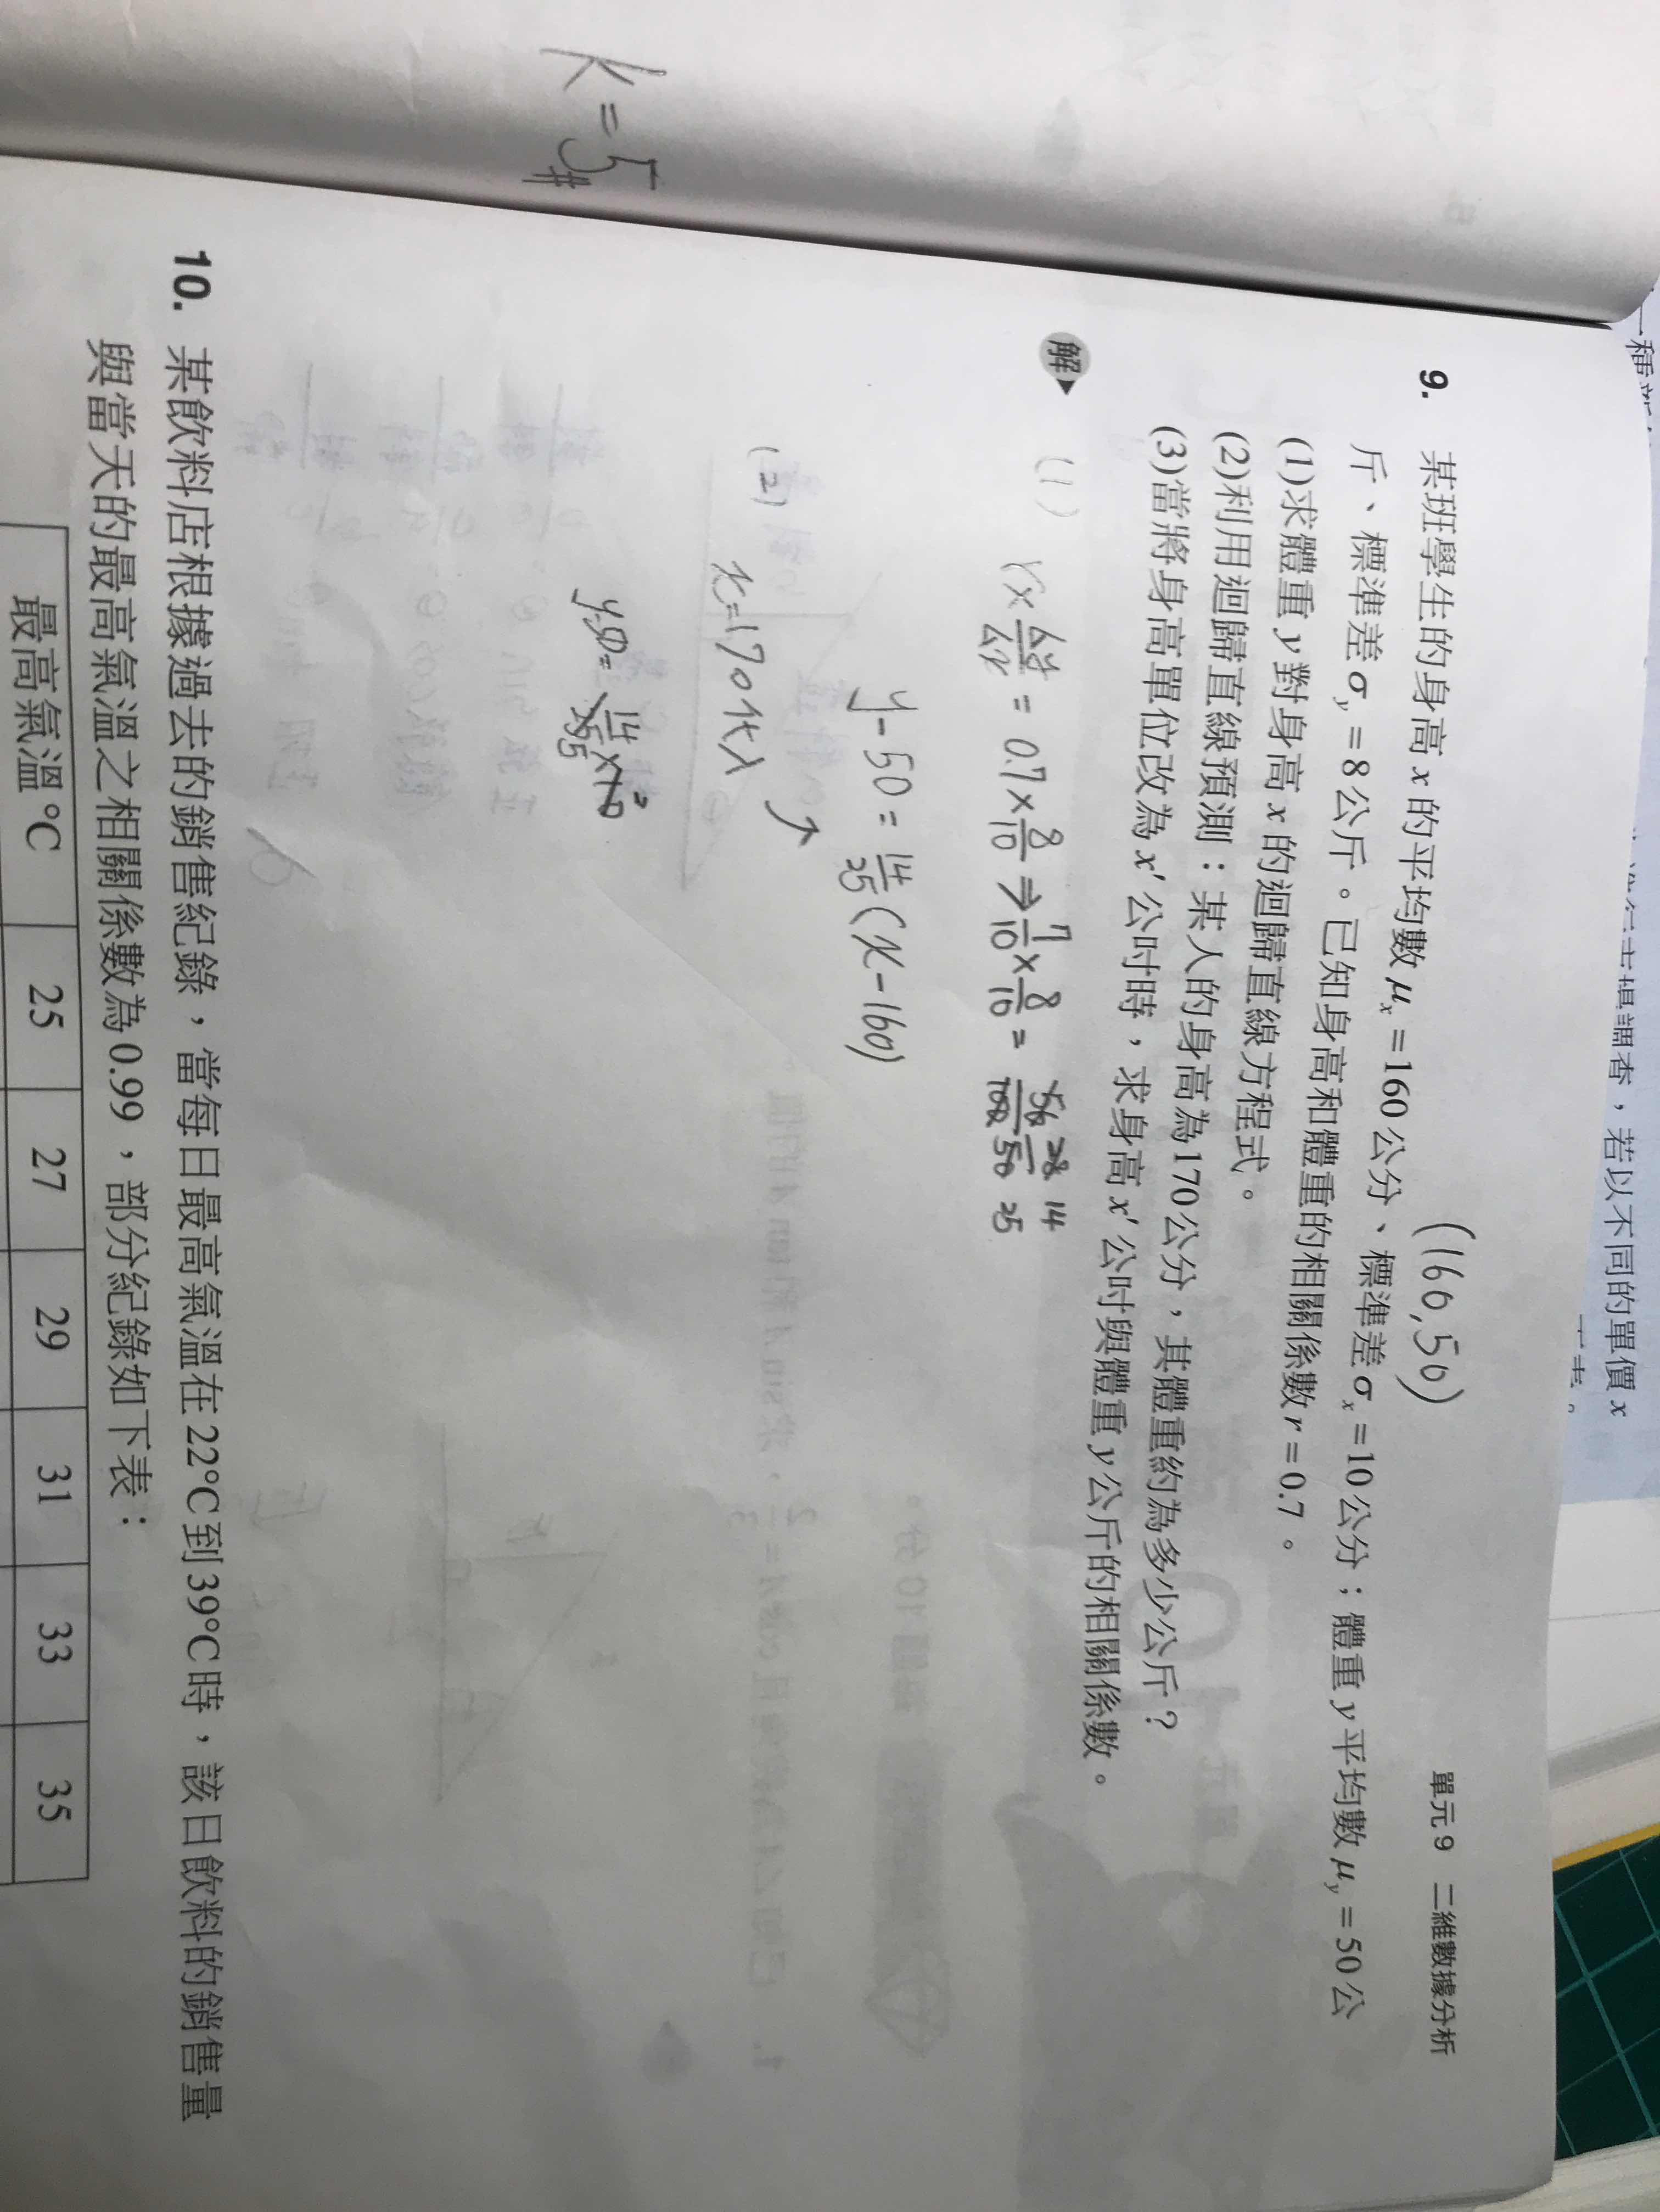 單元 9 二維數據分析
(160,50)
9. 某班學生的身高 x 的平均數 μx =160 公分、標準差 σx =10 公分；體重 y 平均數 μy = 50 公
斤、標準差 σy = 8 公斤。已知身高和體重的相關係數 r = 0.7。
(1)求體重 y 對身高 x 的迴歸直線方程式。
(2)利用迴歸直線預測：某人的身高為170公分，其體重約為多少公斤？
(3)當將身高單位改為 x′ 公吋時，求身高 x′ 公吋與體重 y 公斤的相關係數。
解
(1) r× Δy/Δx = 0.7× 8/10 ⇒ 7/10 × 8/10 = 56/100 28/50 14/25
y-50= 14/25 (x-160)
(2) x=170代入
y-50= 14/25 ×10
5 2
K=5#
10. 某飲料店根據過去的銷售紀錄，當每日最高氣溫在22°C到39°C時，該日飲料的銷售量
與當天的最高氣溫之相關係數為0.99，部分紀錄如下表：
最高氣溫°C 25 27 29 31 33 35
一種
調查，若以不同的單價 x